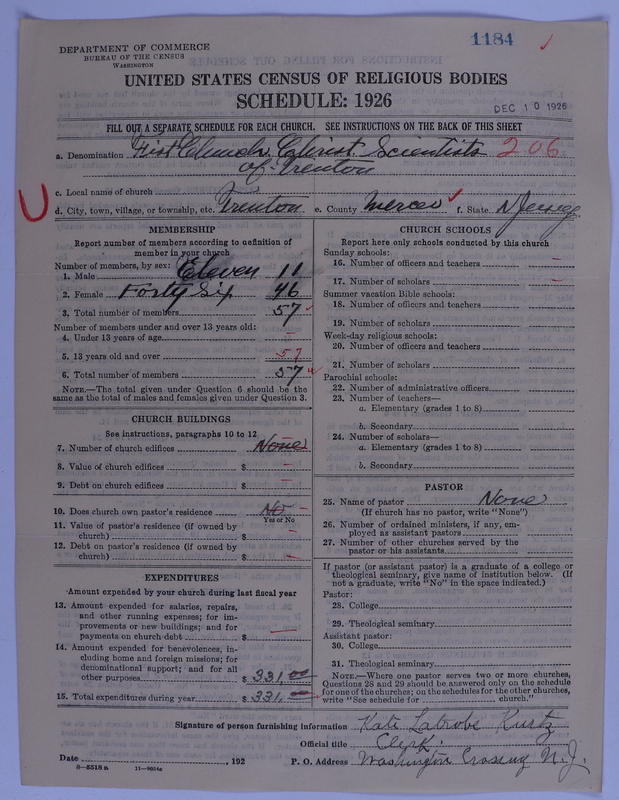 1184
DEPARTMENT OF COMMERCE
BUREAU OF THE CENSUS
WASHINGTON
UNITED STATES CENSUS OF RELIGIOUS BODIES
SCHEDULE: 1926
DEC 10 1926
FILL OUT A SEPARATE SCHEDULE FOR EACH CHURCH. SEE INSTRUCTIONS ON THE BACK OF THIS SHEET
a. Denomination First Church Christ Scientists 206
of Trenton
c. Local name of church
U d. City, town, village, or township, etc. Trenton e. County Mercer f. State N Jersey
MEMBERSHIP
Report number of members according to definition of
member in your church
Number of members, by sex:
1. Male Eleven 11
2. Female Forty Six 46
3. Total number of members 57
Number of members under and over 13 years old:
4. Under 13 years of age –
5. 13 years old and over 57
6. Total number of members 57
NOTE.—The total given under Question 6 should be the
same as the total of males and females given under Question 3.
CHURCH BUILDINGS
See instructions, paragraphs 10 to 12
7. Number of church edifices None
8. Value of church edifices $ –
9. Debt on church edifices $ –
10. Does church own pastor's residence No –
Yes or No
11. Value of pastor's residence (if owned by
church) $ –
12. Debt on pastor's residence (if owned by
church) $ –
EXPENDITURES
Amount expended by your church during last fiscal year
13. Amount expended for salaries, repairs,
and other running expenses; for im-
provements or new buildings; and for
payments on church debt $ –
14. Amount expended for benevolences, in-
cluding home and foreign missions; for
denominational support; and for all
other purposes $ 331.00
15. Total expenditures during year $ 331.00
CHURCH SCHOOLS
Report here only schools conducted by this church
Sunday schools:
16. Number of officers and teachers –
17. Number of scholars –
Summer vacation Bible schools:
18. Number of officers and teachers
19. Number of scholars
Week-day religious schools:
20. Number of officers and teachers
21. Number of scholars
Parochial schools:
22. Number of administrative officers
23. Number of teachers—
a. Elementary (grades 1 to 8)
b. Secondary
24. Number of scholars—
a. Elementary (grades 1 to 8)
b. Secondary
PASTOR
25. Name of pastor None
(If church has no pastor, write "None")
26. Number of ordained ministers, if any, em-
ployed as assistant pastors
27. Number of other churches served by the
pastor or his assistants
If pastor (or assistant pastor) is a graduate of a college or
theological seminary, give name of institution below. (If
not a graduate, write "No" in the space indicated.)
Pastor:
28. College
29. Theological seminary
Assistant pastor:
30. College
31. Theological seminary
NOTE.—Where one pastor serves two or more churches,
Questions 28 and 29 should be answered only on the schedule
for one of the churches; on the schedules for the other churches,
write "See schedule for church."
Signature of person furnishing information Kate Latrobe Kurtz
Official title Clerk.
Date , 192 P. O. Address Washington Crossing N. J.
8—5518a 11—9054a